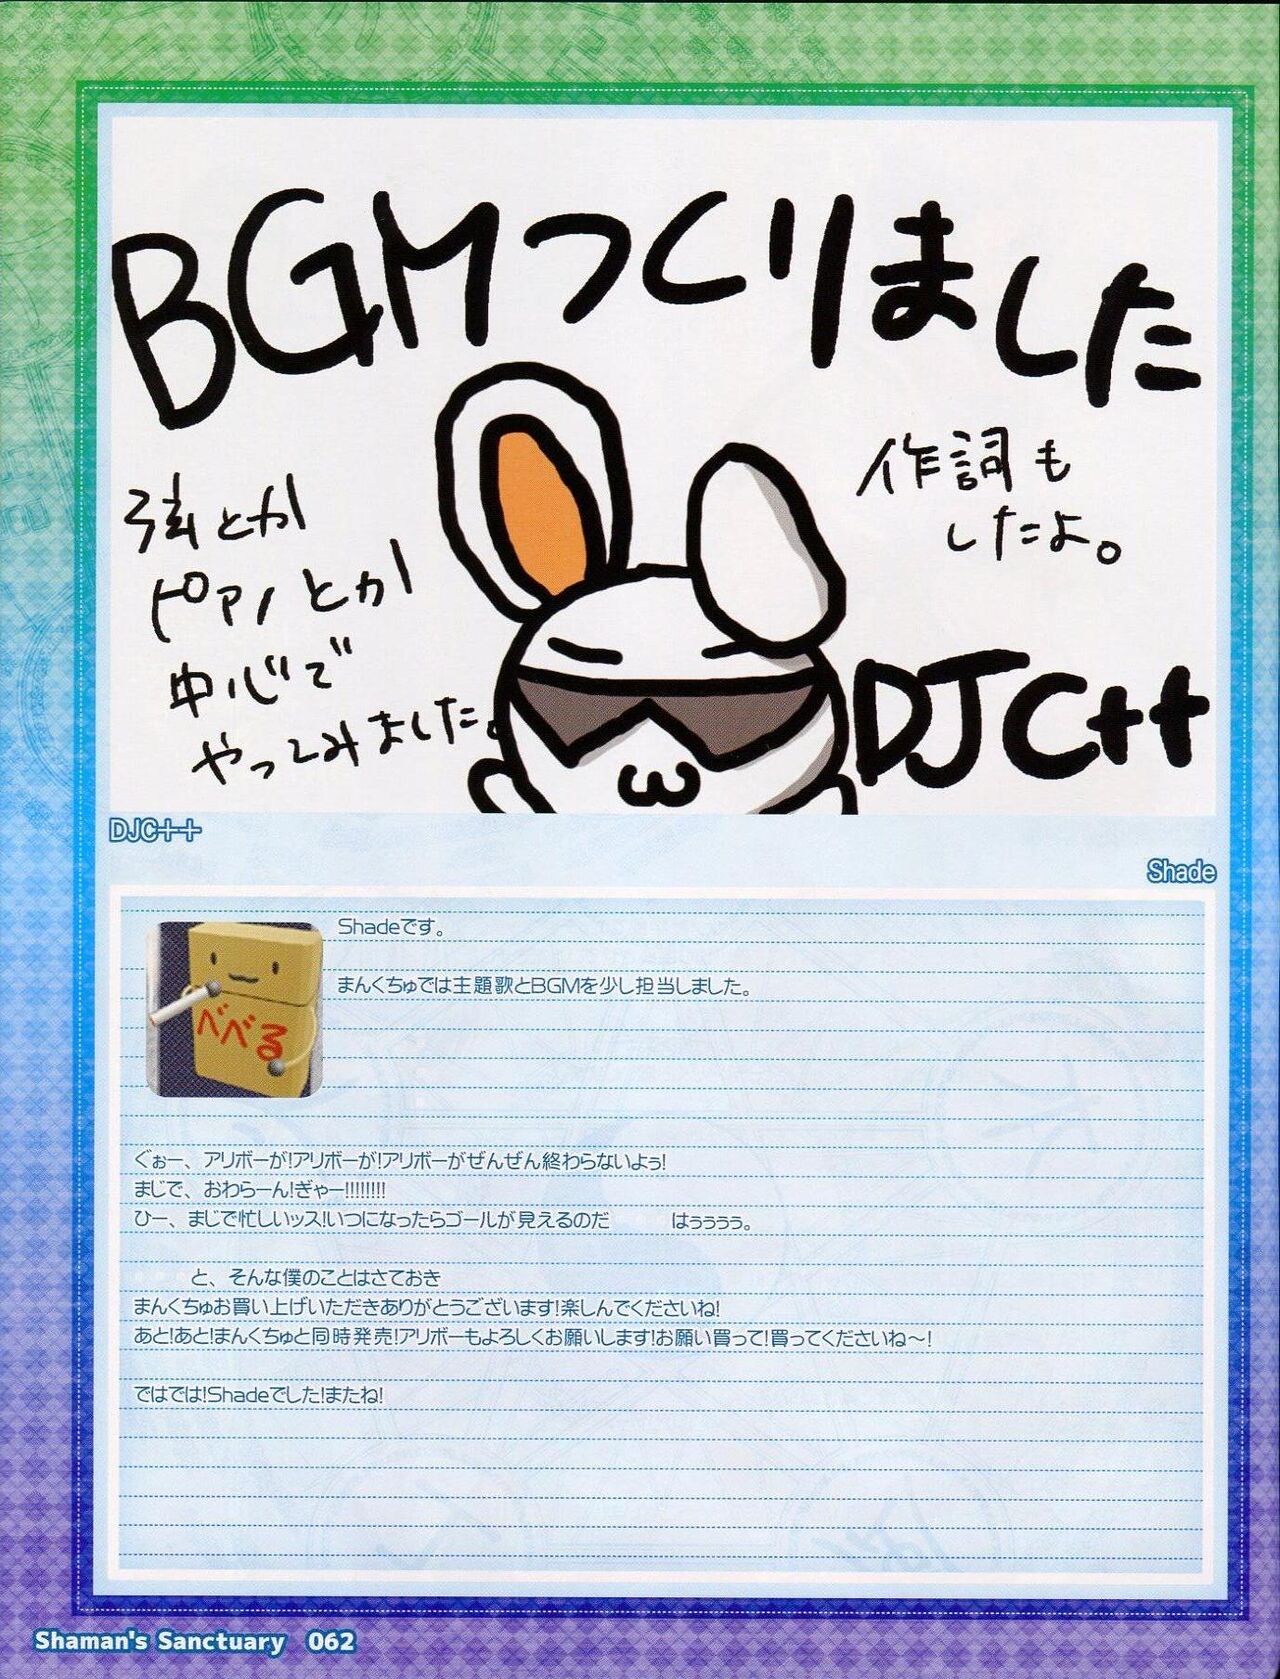 BGMつくりました
弦とか
ピアノとか
中心で
やってみました。
作詞も
したよ。
DJC++
DJC++
Shade
べべる
Shadeです。
まんくちゅでは主題歌とBGMを少し担当しました。
ぐぉー、アリボーが!アリボーが!アリボーがぜんぜん終わらないよぅ!
まじで、おわらーん!ぎゃー!!!!!!!!
ひー、まじで忙しいッス!いつになったらゴールが見えるのだ　　　はぅぅぅぅ。
と、そんな僕のことはさておき
まんくちゅお買い上げいただきありがとうございます!楽しんでくださいね!
あと!あと!まんくちゅと同時発売!アリボーもよろしくお願いします!お願い買って!買ってくださいね～!
ではでは!Shadeでした!またね!
Shaman's Sanctuary 062